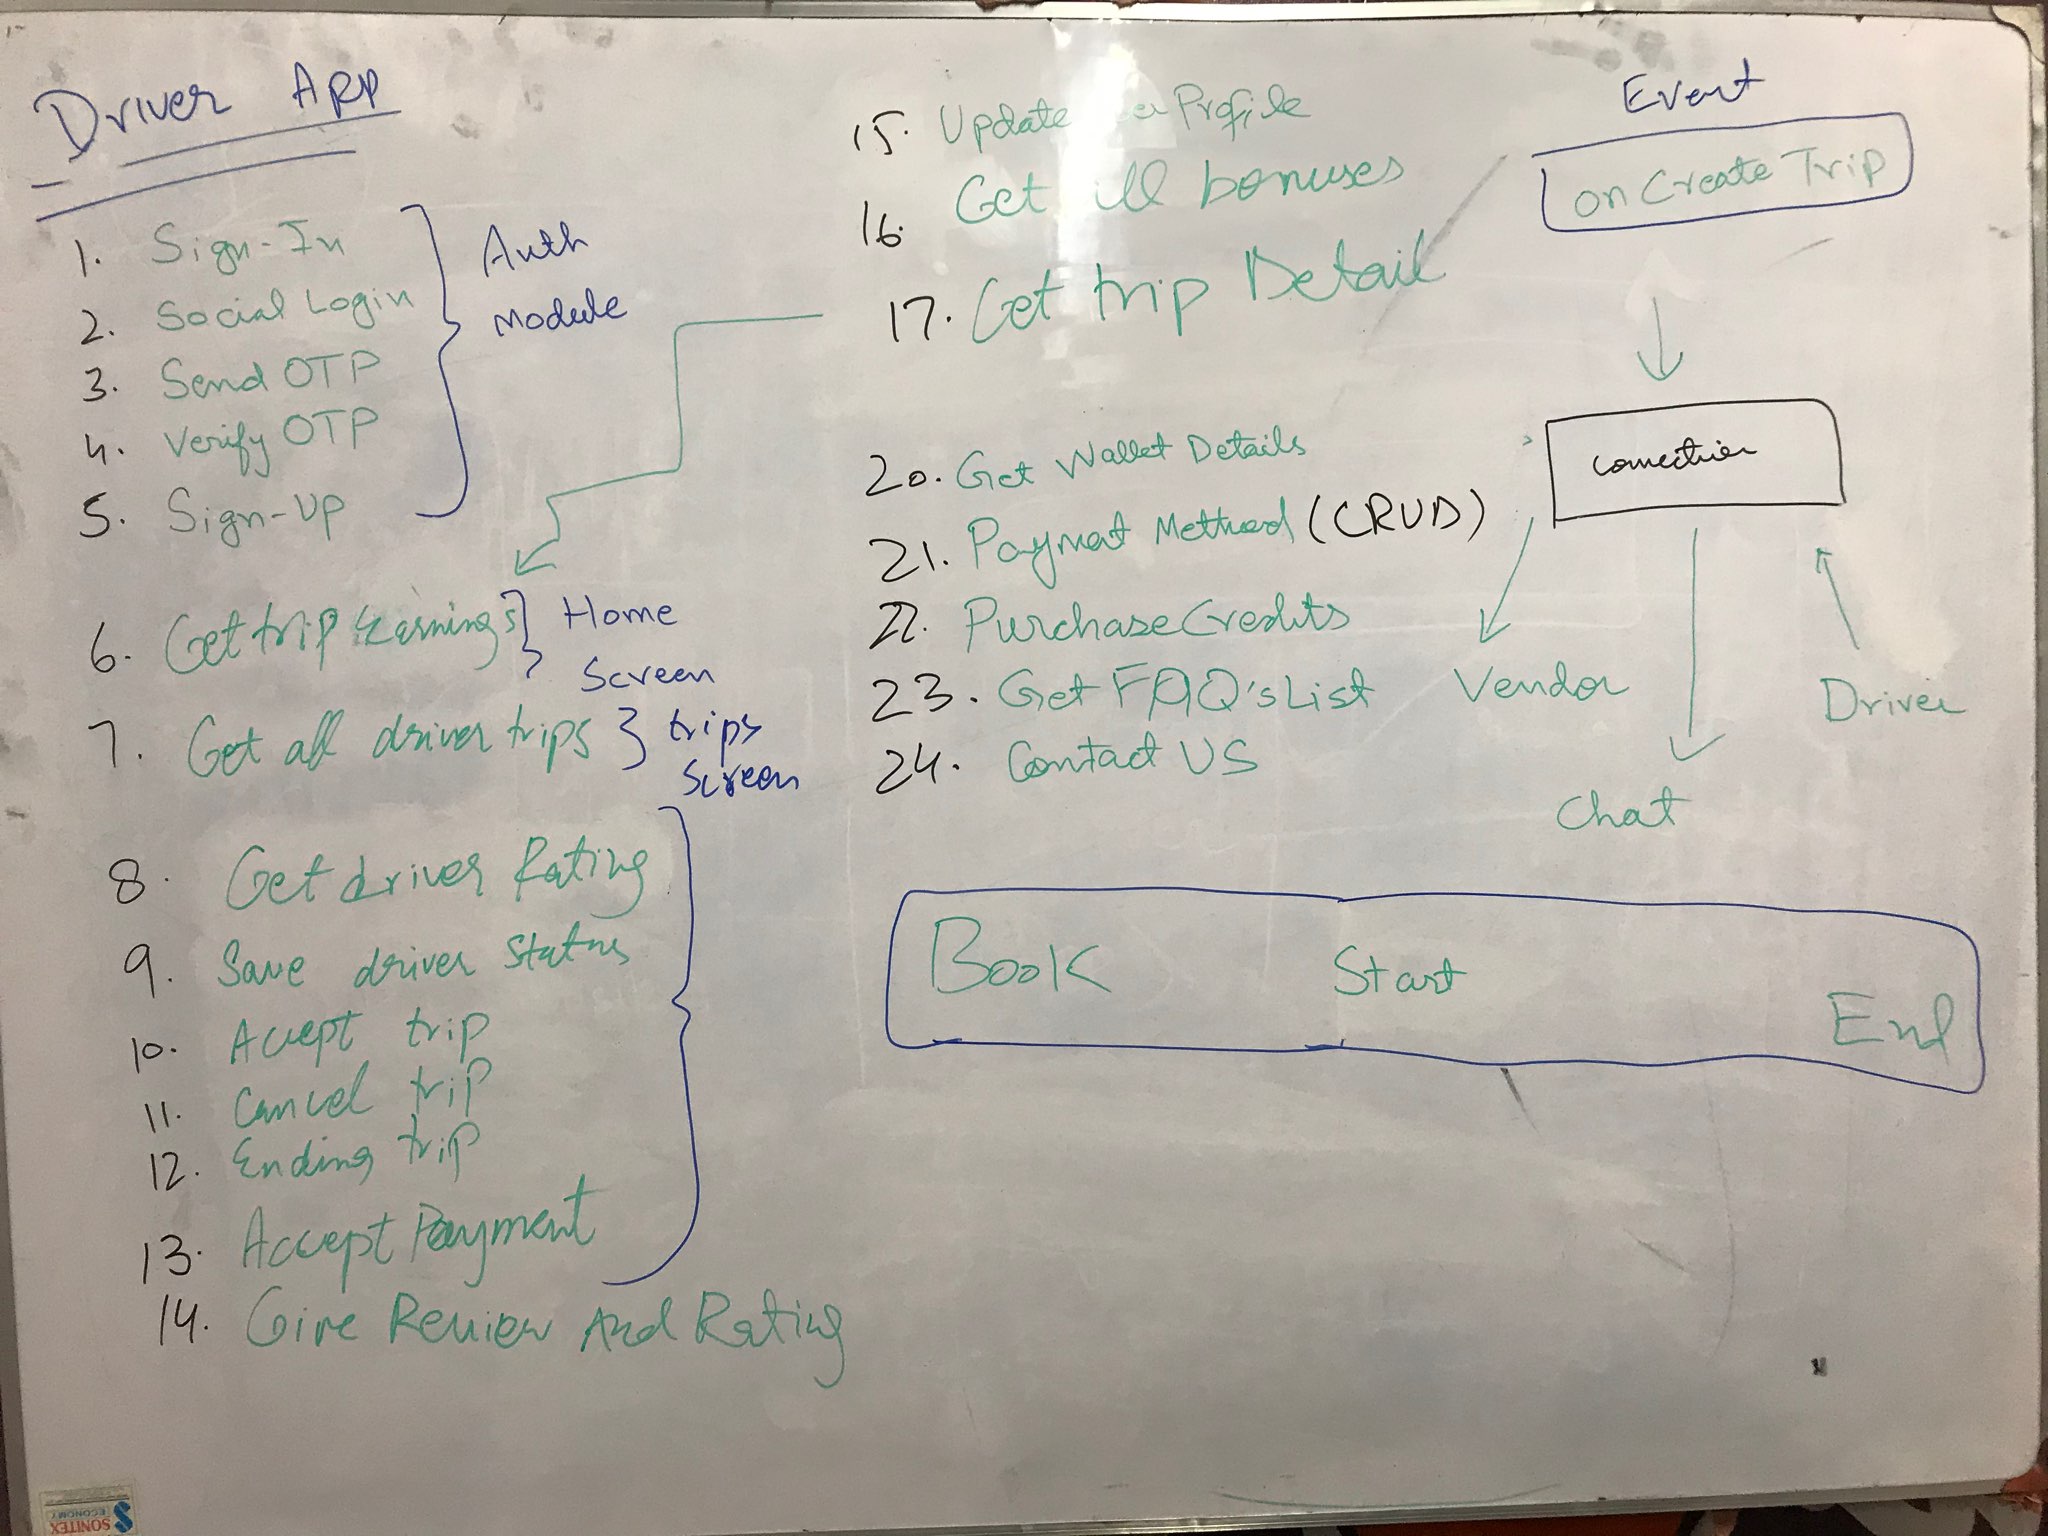 Driver App
1. Sign-In
2. Social Login
3. Send OTP
4. Verify OTP
5. Sign-Up
Auth
Module
6. Get trip Earnings
Home
Screen
7. Get all driver trips
trips
Screen
8. Get driver Rating
9. Save driver Status
10. Accept trip
11. Cancel trip
12. Ending trip
13. Accept Payment
14. Give Review And Rating
15. Update Profile
16. Get all bonuses
17. Get trip Detail
20. Get Wallet Details
21. Payment Method (CRUD)
22. Purchase Credits
23. Get FAQ's List
24. Contact US
Event
on Create Trip
Connection
Vendor
Driver
Chat
Book Start End
SONITEX
ECONOMY